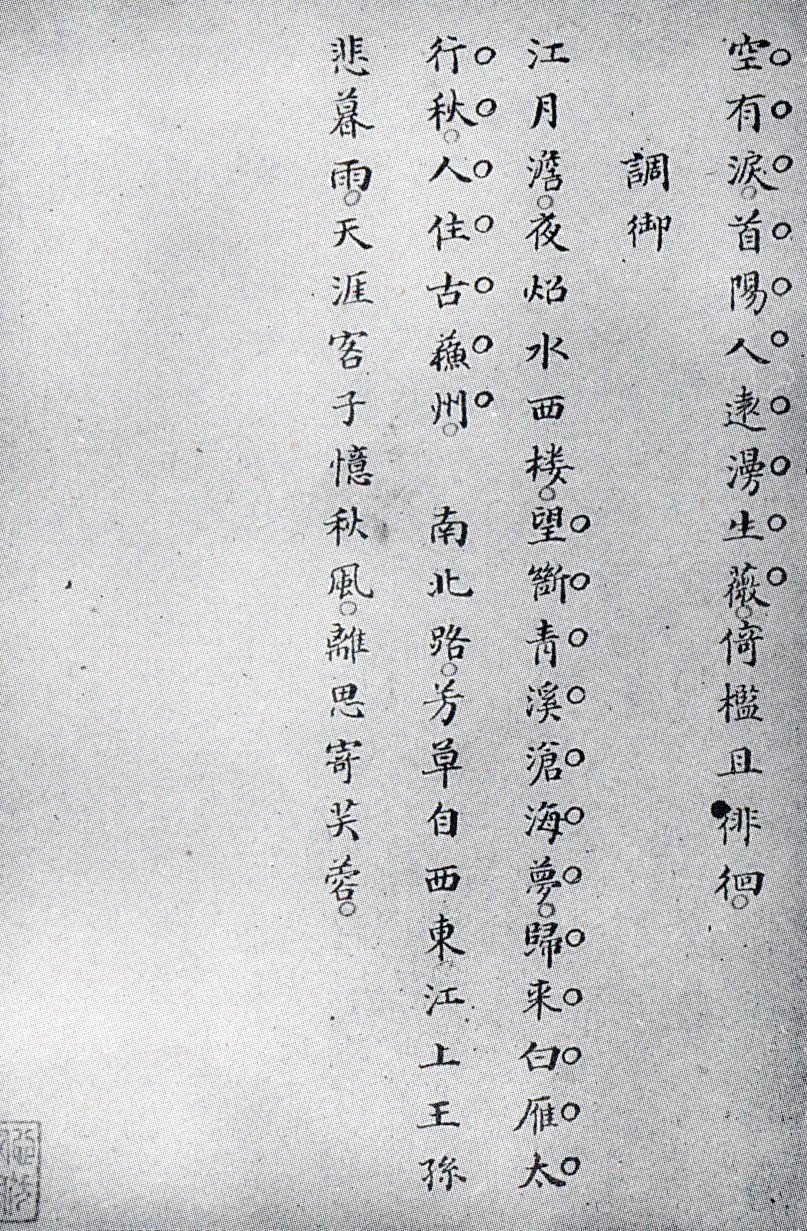 空有淚首陽人遠漫生薇倚檻且徘徊
調御
江月澹夜炤水西楼望斷青溪滄海夢歸来白雁太
行秋人住古蘓州　南北路芳草自西東江上王孫
悲暮雨天涯客子憶秋風離思寄芙蓉